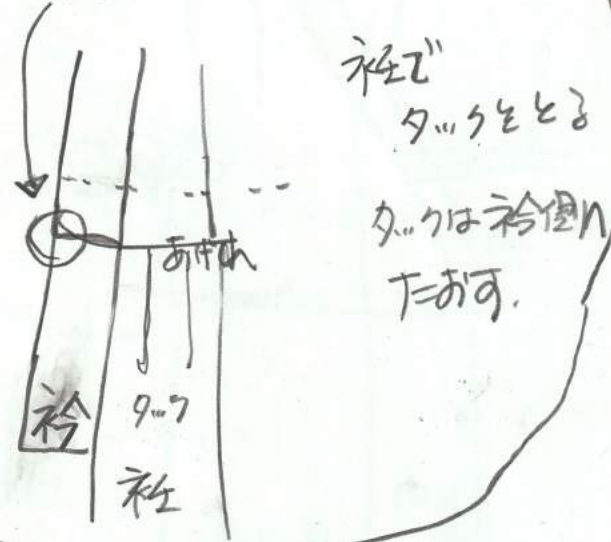 衽で
タックをとる
タックは衿側へ
たおす.
あげ山
衿
タック
衽